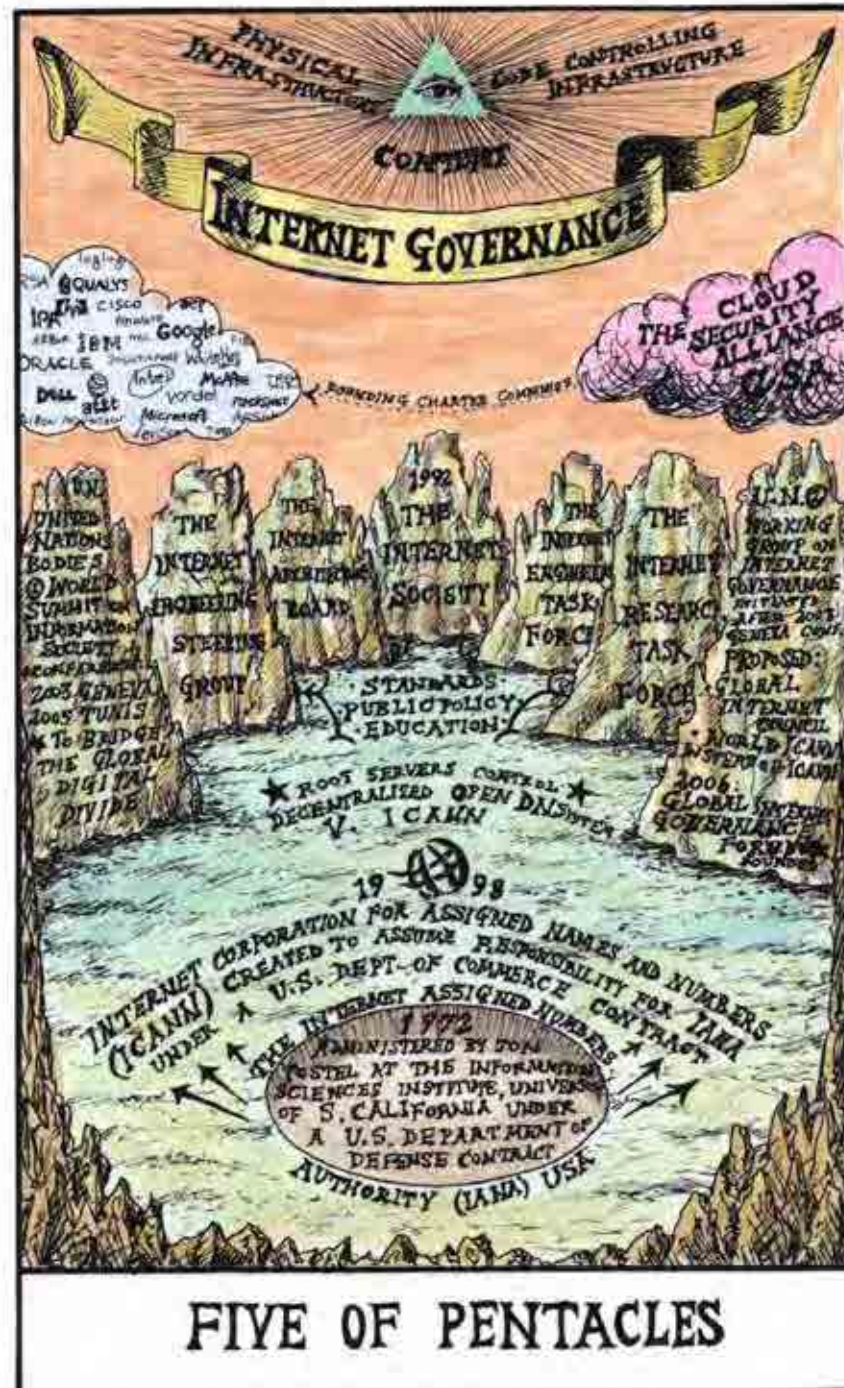 PHYSICAL
INFRASTRUCTURE
CODE CONTROLLING
INFRASTRUCTURE
CONTENT
INTERNET GOVERNANCE
QUALYS
CISCO
IBM
Google
ORACLE
DELL
Intel
McAfee
Microsoft
FOUNDING CHARTER COMPANIES
CLOUD
THE SECURITY
ALLIANCE
USA
U.N.
UNITED
NATIONS
BODIES
WORLD
SUMMIT ON
INFORMATION
SOCIETY
2003 GENEVA
2005 TUNIS
TO BRIDGE
THE GLOBAL
DIGITAL
DIVIDE
THE
INTERNET
ENGINEERING
STEERING
GROUP
THE
INTERNET
ARCHITECTURE
BOARD
1992
THE
INTERNET
SOCIETY
THE
INTERNET
ENGINEER
TASK
FORCE
THE
INTERNET
RESEARCH
TASK
FORCE
U.N.
WORKING
GROUP ON
INTERNET
GOVERNANCE
INITIATED
AFTER 2003
GENEVA CONF.
PROPOSED:
GLOBAL
INTERNET
COUNCIL
WORLD ICANN
INSTEAD OF ICANN
2006:
GLOBAL INTERNET
GOVERNANCE
FORUM
FOUNDED
STANDARDS
PUBLIC POLICY
EDUCATION
ROOT SERVERS CONTROL
DECENTRALISED OPEN DNSYSTEM
V. ICANN
1998
INTERNET CORPORATION FOR ASSIGNED NAMES AND NUMBERS
(ICANN) CREATED TO ASSUME RESPONSIBILITY FOR IANA
UNDER A U.S. DEPT. OF COMMERCE CONTRACT
THE INTERNET ASSIGNED NUMBERS
1972
ADMINISTERED BY JON
POSTEL AT THE INFORMATION
SCIENCES INSTITUTE, UNIVERSITY
OF S. CALIFORNIA UNDER
A U.S. DEPARTMENT OF
DEFENSE CONTRACT
AUTHORITY (IANA) USA
FIVE OF PENTACLES